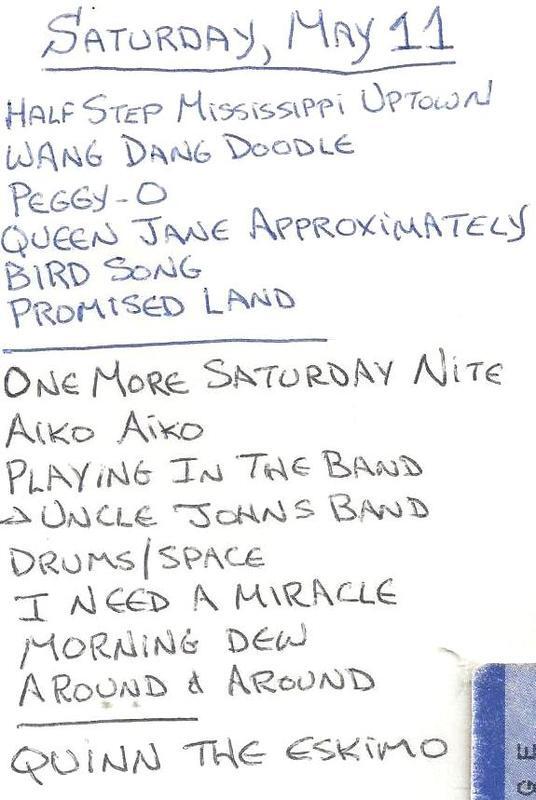 SATURDAY, MAY 11
HALF STEP MISSISSIPPI UPTOWN
WANG DANG DOODLE
PEGGY-O
QUEEN JANE APPROXIMATELY
BIRD SONG
PROMISED LAND
ONE MORE SATURDAY NITE
AIKO AIKO
PLAYING IN THE BAND
→ UNCLE JOHNS BAND
DRUMS/SPACE
I NEED A MIRACLE
MORNING DEW
AROUND & AROUND
QUINN THE ESKIMO
G E